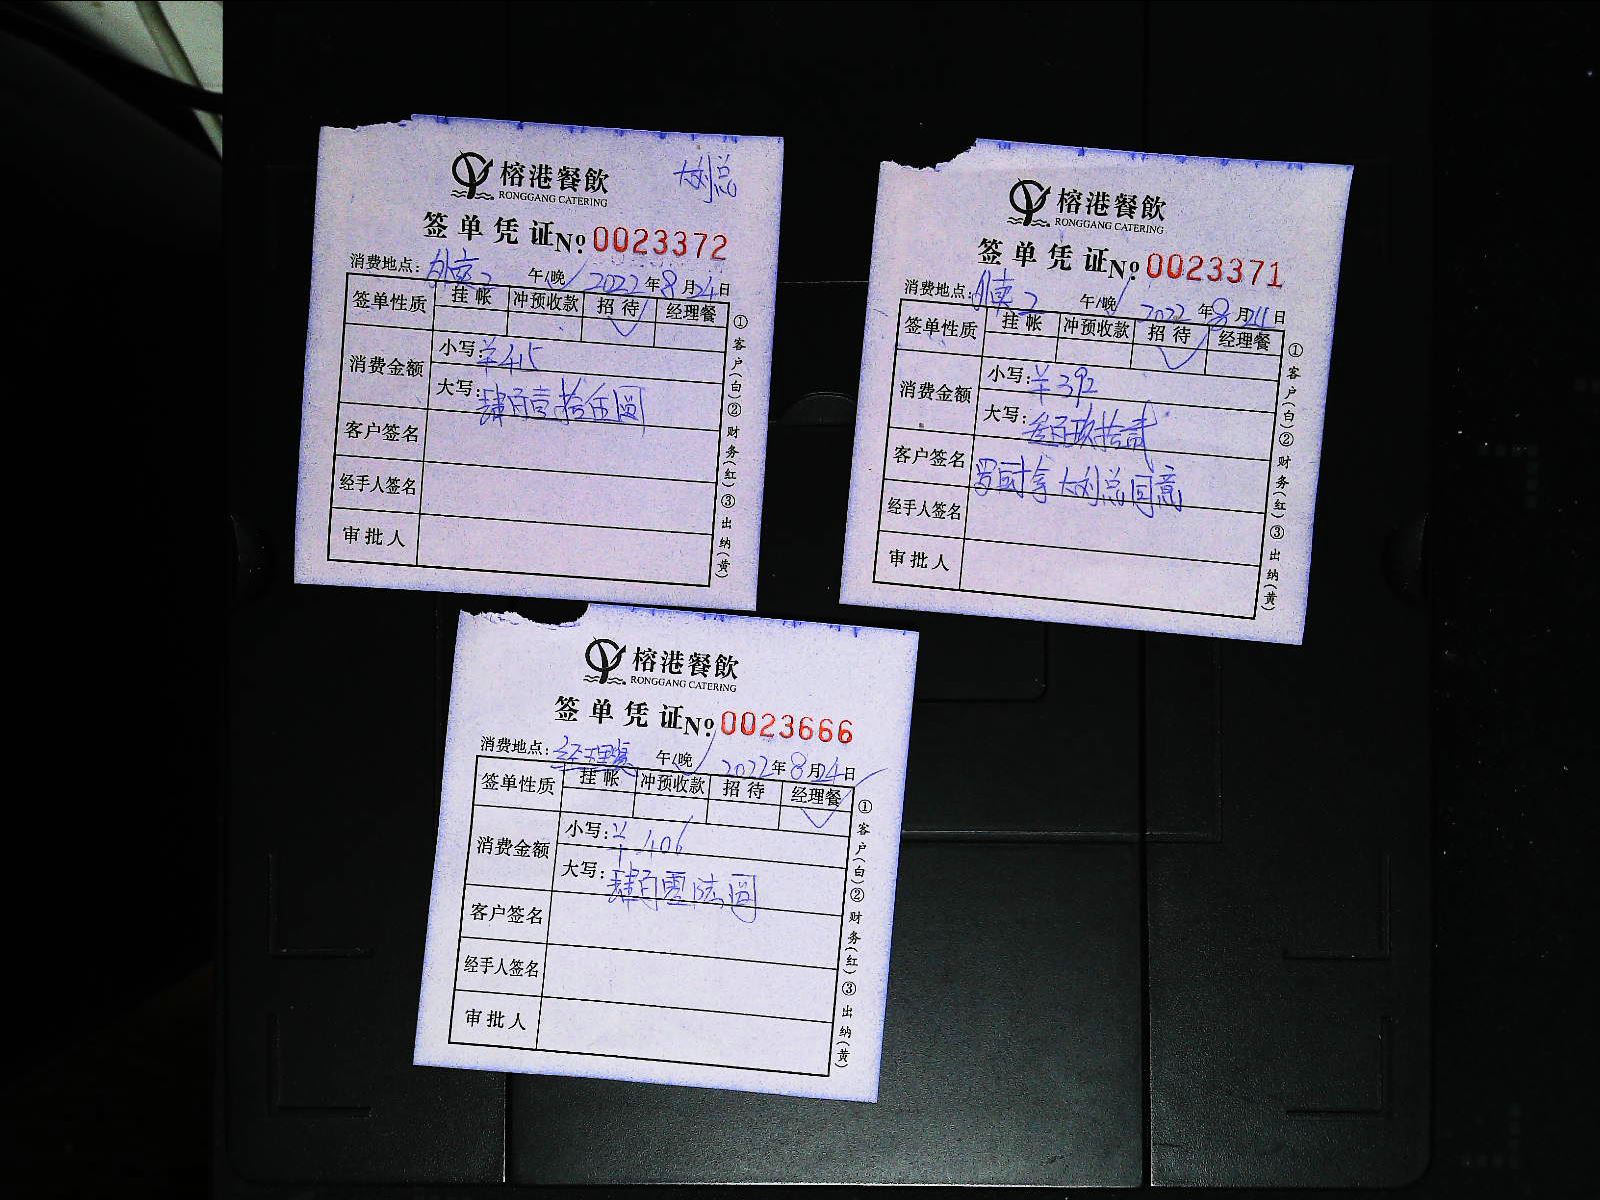 榕港餐飲
RONGGANG CATERING
大刘总
签单凭证 № 0023372
消费地点: 2 午/晚 2022年8月24日
签单性质 挂帐 冲预收款 招待 经理餐
✓
消费金额 小写: ¥415
大写: 肆百壹拾伍圆
客户签名
经手人签名
审批人
①客户(白)②财务(红)③出纳(黄)
榕港餐飲
RONGGANG CATERING
签单凭证 № 0023371
消费地点: 2 午/晚 2022年8月24日
签单性质 挂帐 冲预收款 招待 经理餐
✓
消费金额 小写: ¥392
大写: 叁百玖拾贰
客户签名 拿大刘总同意
经手人签名
审批人
①客户(白)②财务(红)③出纳(黄)
榕港餐飲
RONGGANG CATERING
签单凭证 № 0023666
消费地点: 经理餐 午/晚 2022年8月24日
签单性质 挂帐 冲预收款 招待 经理餐
✓
消费金额 小写: ¥406
大写: 肆百零陆圆
客户签名
经手人签名
审批人
①客户(白)②财务(红)③出纳(黄)